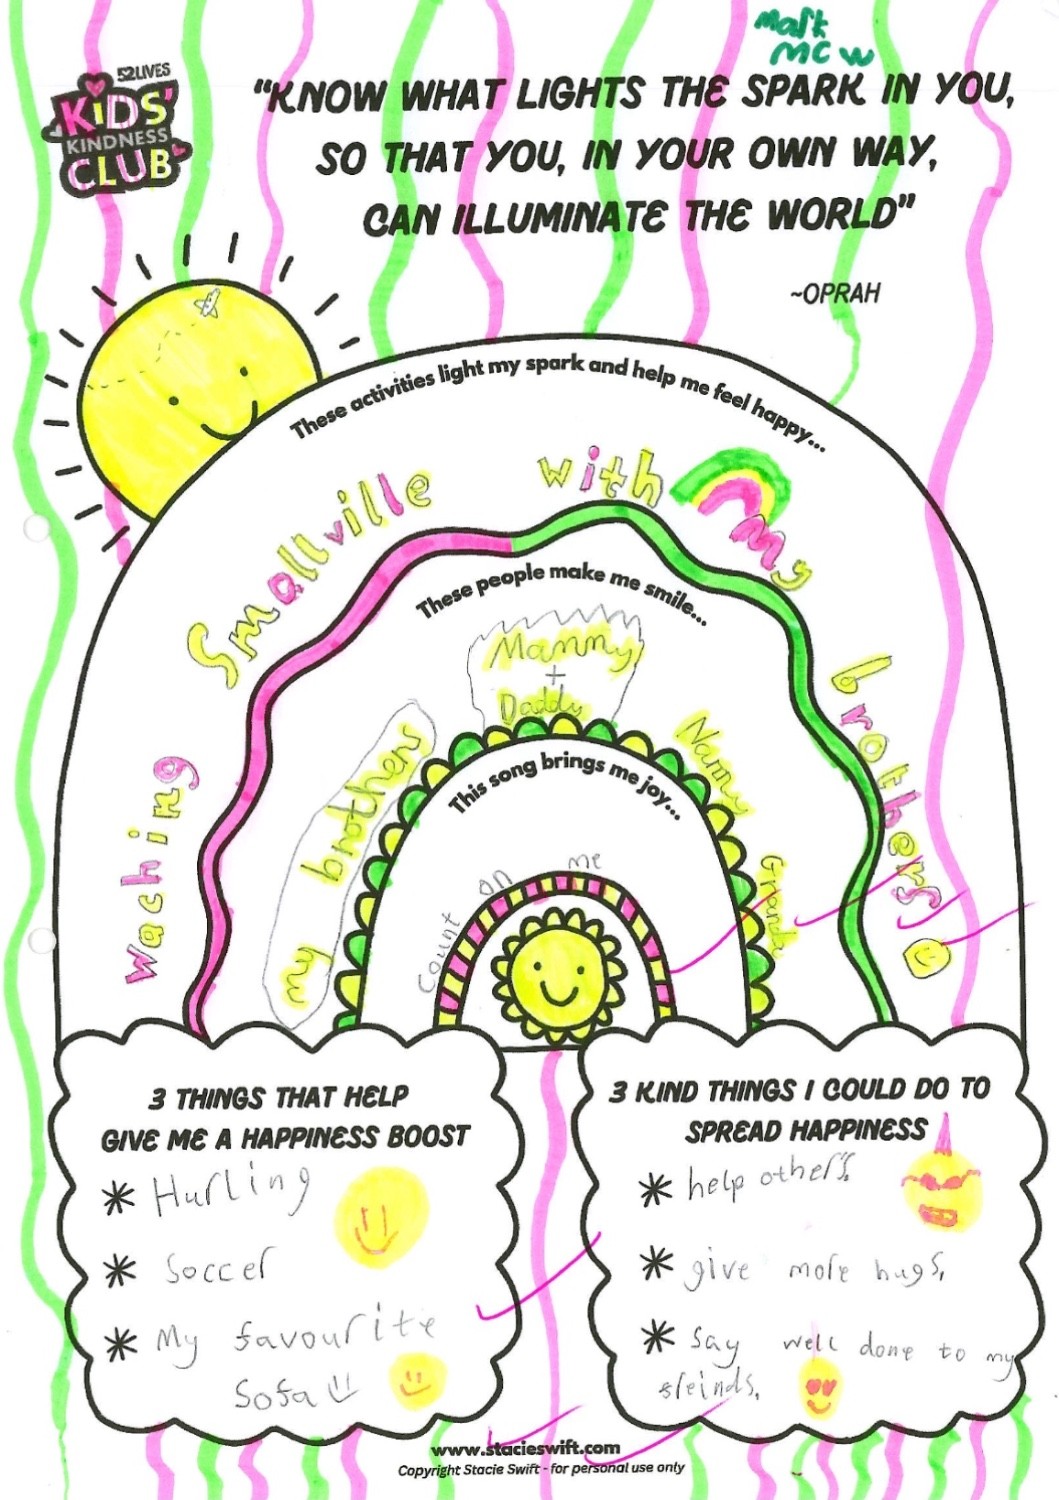 Mark
MCW
52 LIVES
KIDS'
KINDNESS
CLUB
"KNOW WHAT LIGHTS THE SPARK IN YOU,
SO THAT YOU, IN YOUR OWN WAY,
CAN ILLUMINATE THE WORLD"
~OPRAH
These activities light my spark and help me feel happy...
Waching Smallville with my brothers
These people make me smile...
my brothers
Mammy
+
Daddy
Nanny
Granda
This song brings me joy...
Count on me
3 THINGS THAT HELP
GIVE ME A HAPPINESS BOOST
* Hurling
* Soccer
* My favourite
Sofa
3 KIND THINGS I COULD DO TO
SPREAD HAPPINESS
* help others.
* give more hugs.
* Say well done to my
freinds.
www.stacieswift.com
Copyright Stacie Swift - for personal use only